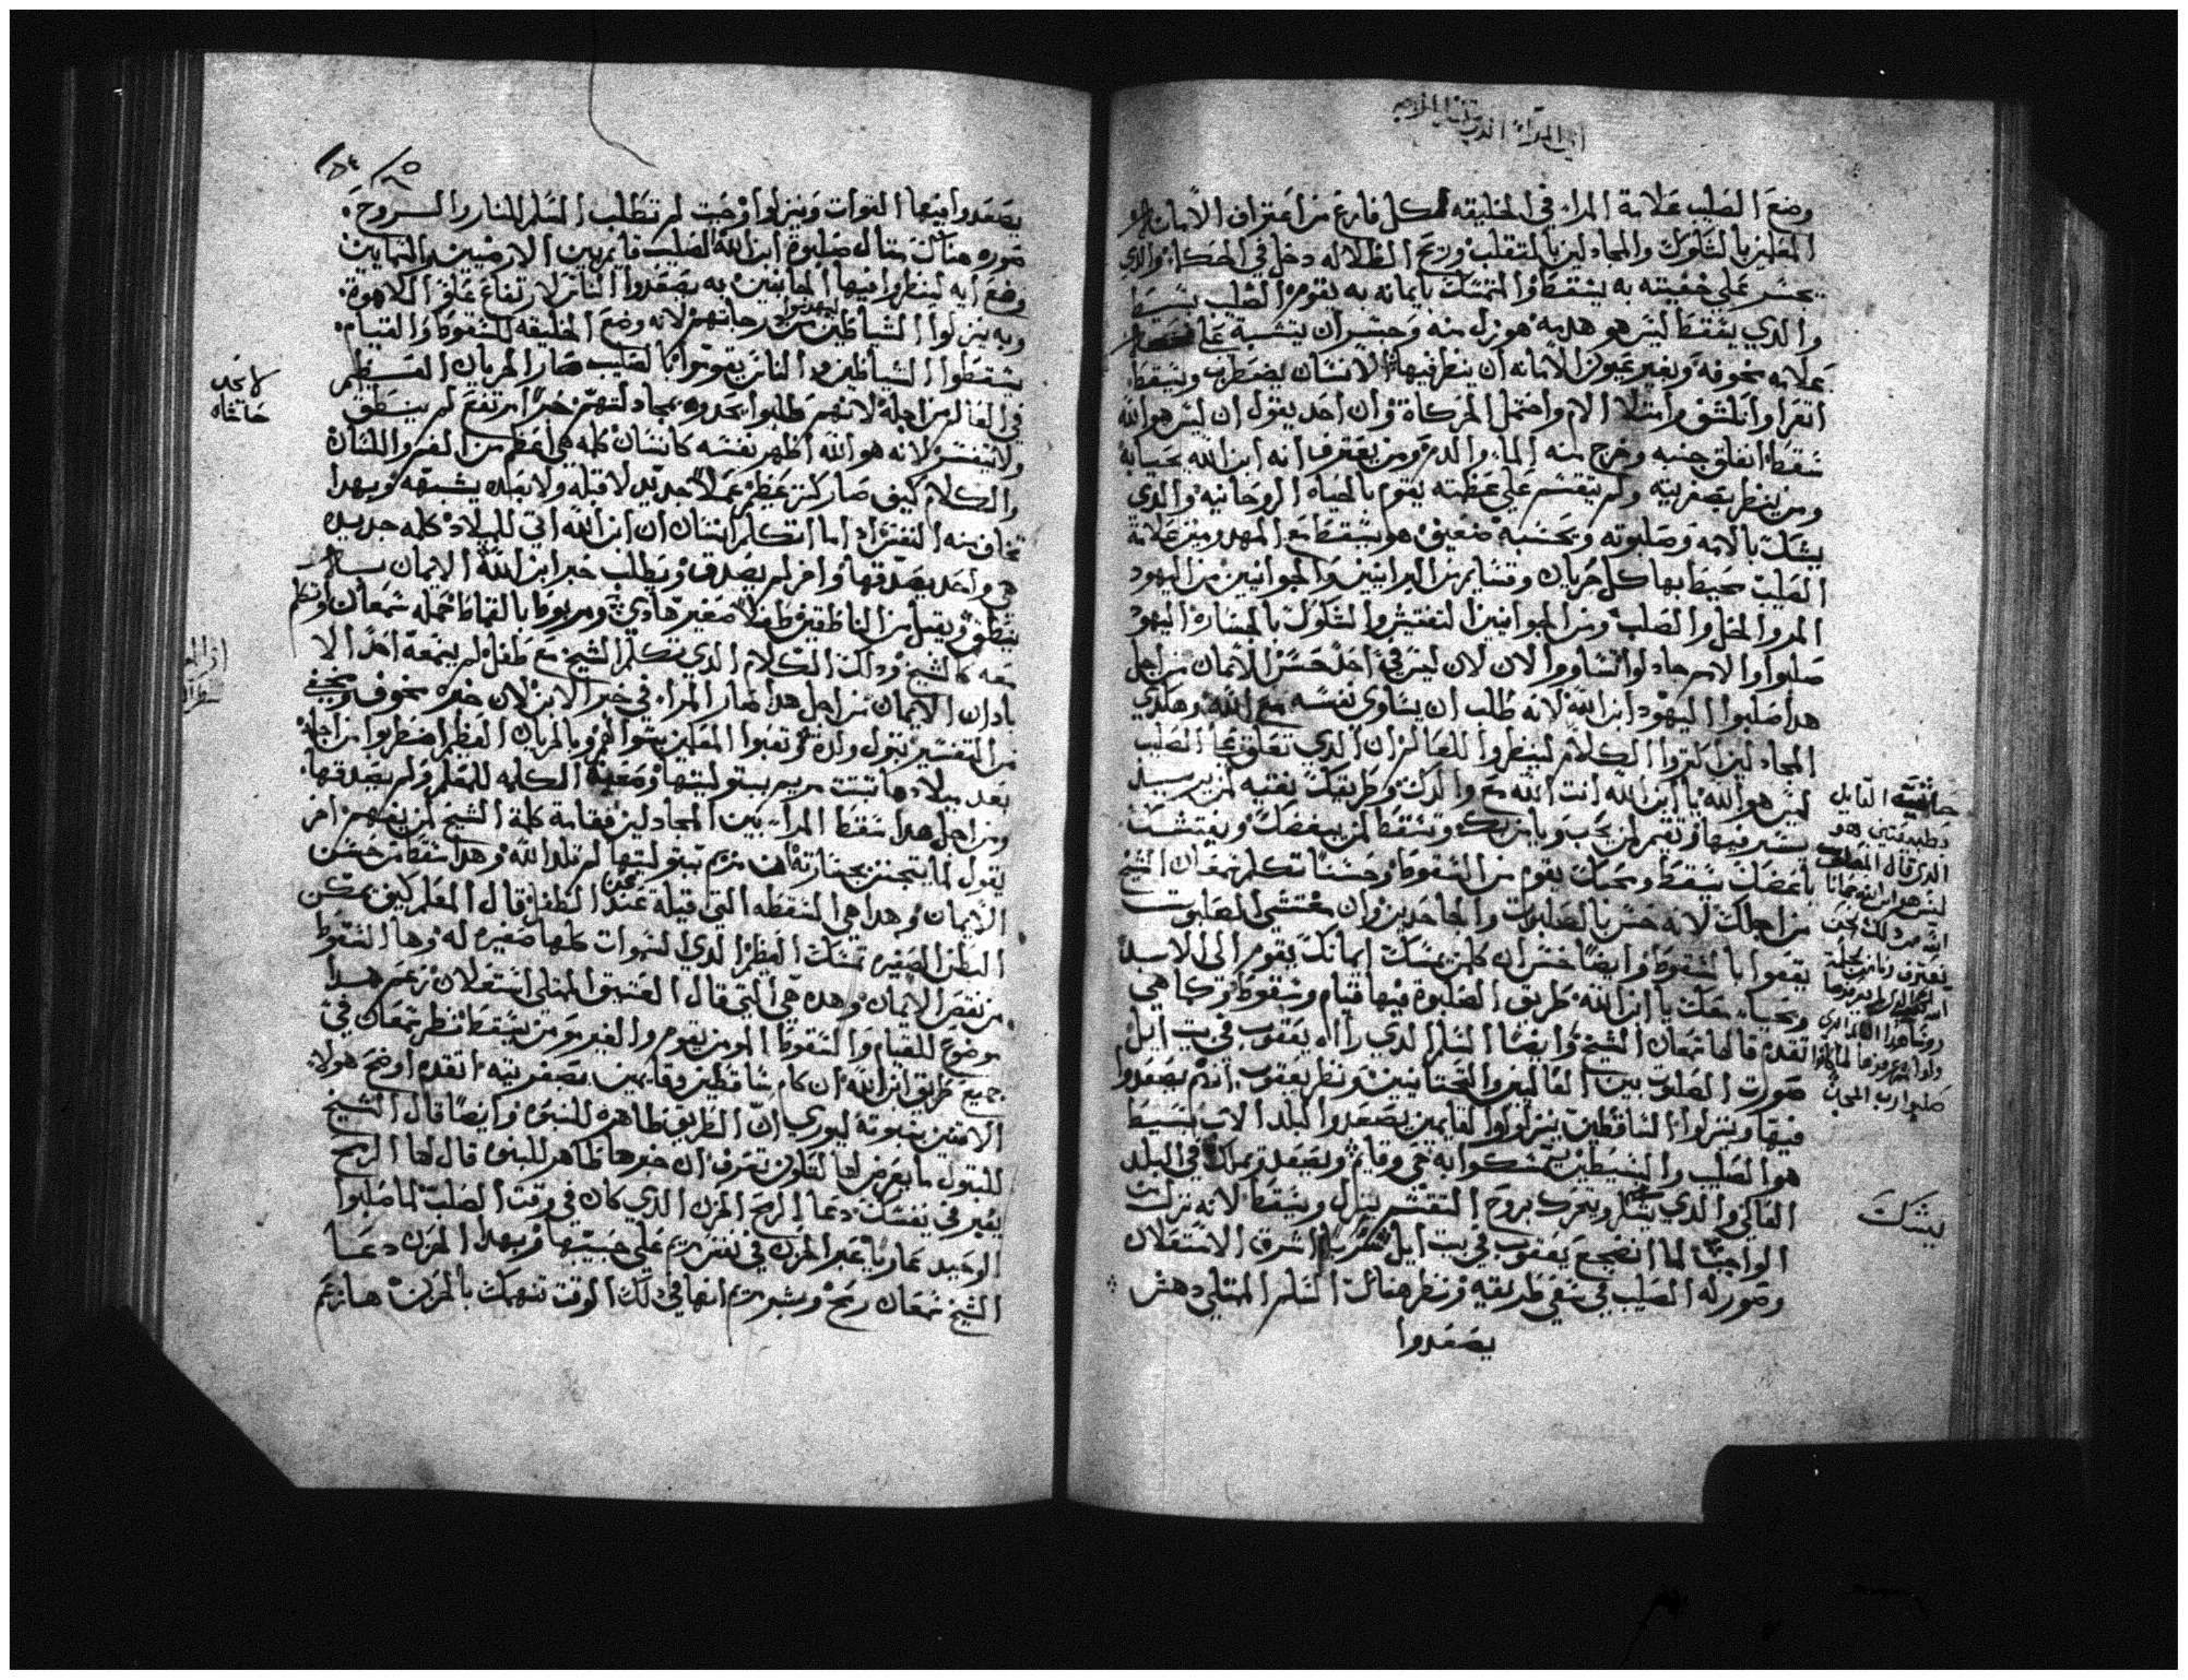 وضع الصليب علامة المراء في الخليقه لكل فارغ من اعتراف الامانه
المعلمين بالشكوك والمجادلين بالمتقلب وريح الظلاله دخل في الحكماء والذي
يجسر على خفيته به يسقط والمتمسك بايمانه به يقوم الصليب بسيط
والدي يسقط ليس هو هدمه هو زل منه وحسر ان يتشبه على
علامه مخوفه وبغير عيون الامانه ان ينظر فيها الانسان يضطرب ويسقط
اتعرا وانلشق وامتلا الام واحتمل الحركاة وان احد يقول ان ليس هو الله
سقط انفلق جنبه وخرج منه الماء والدم ومن يعترف انه ابن الله بحياته
ومن ينظر بصغريته ولم يتقسم على عظمته يقوم بالحياه الروحانيه والذي
يشك بالامه وصلبوته ويحسبه ضعيف هو يسقط مع المهدومين علامة
الصليب محيط بها كل حربات وقسايم من البرانيين والجوانيين من اليهود
المر والخل والصلب ومن الجوانيين التفتيش والشكوك بالخساره اليهود
صلبوا والامم جادلوا تشاوروا الان لان ليس في احد حسن للايمان من اجل
هدا صلبوا اليهود ابن الله لانه طلب ان يساوى نفسه مع الله وهكدي
المجادلين اكتروا الكلام لينظروا للعالم ان الدي تعلق على الصليب
ليس هو الله يا ابن الله انت الله مع والدك وطريقك نقيه لمن يريد
يسير فيها وتعير لمن يحب ويامن بك وتسقط لمن يبغضك ويفتشك
باغضك يسقط ومحبك يقوم من السقوط وحسنا تكلم شمعان الشيخ
من اجلك لانه حسن بالصلبوت والجاحدين وان مفتشي الصلبوت
يقعوا بالسقوط وايضا حسن ان كلمن يمسك ايمانك يقوم الى الابد
ويحيا معك يا ابن الله طريق الصلبوة فيها قيام وسقوط وكما هي
تقدم قالها شمعان الشيخ وايضا السلم الدي راه يعقوب في بيت ايل
صورت الصلبوت بين العاليين والتحتانيين ونظر يعقوب انهم يصعدوا
فيها وينزلوا الساقطين ينزلوا والقايمين يصعدوا لبلد الاب بسيط
هو الصليب والبسيطين يتمسكوا به حى وقايم ويصعد يملك في البلد
العالي والدي يشك ويتحرك بروح التفتيش ينزل ويسقط لانه نزل من
الواجب لما انضجع يعقوب في بيت ايل اشرق الاستعلان
وصور له الصليب في سعي طريقه ونظر هناك السلم الممتلي دهش
يصعدوا
حاشيه القايل
بطبيعتين هو
الدي قال المصلوب
ليس هو الله
يشك
يصعدوا فيها القوات وينزلوا وجبت لم تطلب السلم للنار والروح
صوره هناك مثال صلبوة ابن الله الصليب قايم بين الارضيين والسمايين
وضع ابه لينظروا فيها الجانبين به يصعدوا الناس لارتفاع علو اللاهوة
وبه ينزلوا الشياطين من درجاتهم لانه وضع الخليقه للسقوط والقيام
يسقطوا الشياطين والناس يقوموا بالصليب صار الحربات العظيم
في العالم من اجله لانهم طلبوا يجدوه بمجادلتهم خبرا مرتفع لم ينطق
ولا يتفسر لانه هو الله اظهر نفسه كانسان كلمه هي اعظم من الفم واللسان
والكلام كيف صار كنز عظيم عملا جديد لا قبله ولا بعده يشبهه وبهدا
تخاف منه التفتيش اد اما اتكلم انسان ان ابن الله اتى للميلاد كلمه جديده
هي واحد يصدقها واخر لم يصدق ويطلب خبر ابن الله الايمان
ينطق ويقبل من الناطقين طفلا صغير هادي ومربوط بالقماط حمله شمعان وتكلم
معه كالشيخ ودلك الكلام الدي تكلم الشيخ مع طفل لم يسمعه احد الا
بادان الايمان من اجل هدا صار المراء في خبر الابن لان خبره مخوف ومخفي
من التفسير بتول ولدة وتعبوا المعلمين يقوا لفم وبالحربات العظيم اضطربوا من اجله
بعد ميلادها تبتت مريم ببتوليتها وصعبة الكلمه للمعلم ولم يصدقها
ومن اجل هدا سقط المراء بين المجادلين فقامة كلمة الشيخ لمن يفهم اخر
يقول لما يتجنن بجسارته ان مريم ببتوليتها لم تلد الله وهدا سقط من حسن
الايمان وهدا هي السقطه التي قيلة عن الطفل قال المعلم كيف يمكن
البطن الصغيره تمسك العظم الدي السموات كلها صغيره له وها السقوط
من نقص الايمان وهده هي التي قال العتيق الممتلي استعلان زعم هدا
موضوع للقيام والسقوط المومن يقوم والغير مومن يسقط نظر شمعان في
جميع طريق ابن الله ان كام ساقطين وقايمين بصغريته اتقدم اوضح هولاء
الاتنين بنبوته ليوري ان الطريق ظاهره للنبوه وايضا قال الشيخ
للبتول ما يعرض لها لتكون تعرف ان خبرها ظاهر للنبى قال لها الرمح
يعبر في نفسك دعا الرمح الحزن الدي كان في وقت الصلب لما صلبوا
الوحيد عاريا عبر الحزن في نفس مريم على حبيبها وبهدا الحزن دعا
الشيخ شمعان رمح وبشر مريم انها في دلك الوقت تنهمك بالحزن هازعم
لا يجد
حاشاه